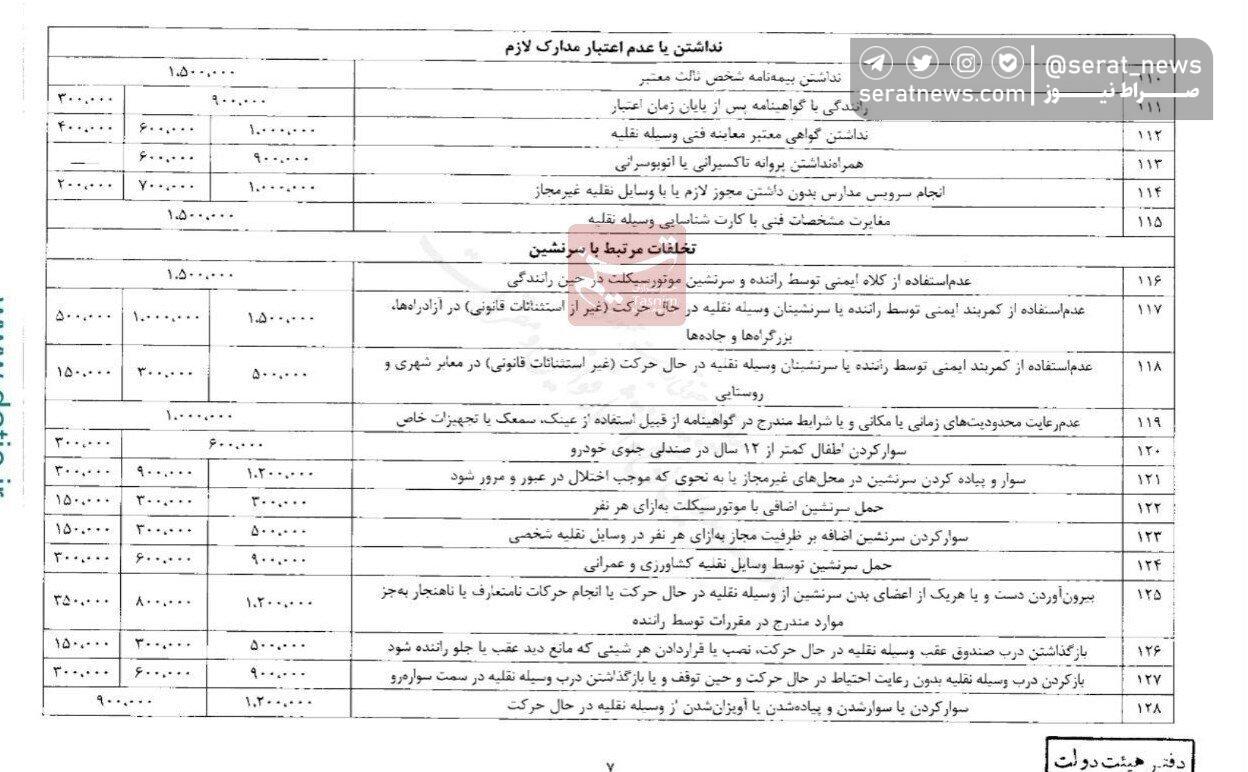 نداشتن یا عدم اعتبار مدارک لازم
@serat_news
seratnews.com | صراط نیوز
۱۱۰ نداشتن بیمه‌نامه شخص ثالث معتبر ۱،۵۰۰،۰۰۰
۱۱۱ رانندگی با گواهینامه پس از پایان زمان اعتبار ۹۰۰،۰۰۰ ۳۰۰،۰۰۰
۱۱۲ نداشتن گواهی معتبر معاینه فنی وسیله نقلیه ۱،۰۰۰،۰۰۰ ۶۰۰،۰۰۰ ۴۰۰،۰۰۰
۱۱۳ همراه‌نداشتن پروانه تاکسیرانی یا اتوبوسرانی ۹۰۰،۰۰۰ ۶۰۰،۰۰۰ —
۱۱۴ انجام سرویس مدارس بدون داشتن مجوز لازم یا با وسایل نقلیه غیرمجاز ۱،۰۰۰،۰۰۰ ۷۰۰،۰۰۰ ۲۰۰،۰۰۰
۱۱۵ مغایرت مشخصات فنی با کارت شناسایی وسیله نقلیه ۱،۵۰۰،۰۰۰
تخلفات مرتبط با سرنشین
۱۱۶ عدم‌استفاده از کلاه ایمنی توسط راننده و سرنشین موتورسیکلت در حین رانندگی ۱،۵۰۰،۰۰۰
۱۱۷ عدم‌استفاده از کمربند ایمنی توسط راننده یا سرنشینان وسیله نقلیه در حال حرکت (غیر از استثنائات قانونی) در آزادراه‌ها، ۱،۵۰۰،۰۰۰ ۱،۰۰۰،۰۰۰ ۵۰۰،۰۰۰
بزرگراه‌ها و جاده‌ها
۱۱۸ عدم‌استفاده از کمربند ایمنی توسط راننده یا سرنشینان وسیله نقلیه در حال حرکت (غیر استثنائات قانونی) در معابر شهری و ۵۰۰،۰۰۰ ۳۰۰،۰۰۰ ۱۵۰،۰۰۰
روستایی
۱۱۹ عدم‌رعایت محدودیت‌های زمانی یا مکانی و یا شرایط مندرج در گواهینامه از قبیل استفاده از عینک، سمعک یا تجهیزات خاص ۱،۰۰۰،۰۰۰
۱۲۰ سوارکردن اطفال کمتر از ۱۲ سال در صندلی جلوی خودرو ۶۰۰،۰۰۰ ۳۰۰،۰۰۰
۱۲۱ سوار و پیاده کردن سرنشین در محل‌های غیرمجاز یا به نحوی که موجب اختلال در عبور و مرور شود ۱،۲۰۰،۰۰۰ ۹۰۰،۰۰۰ ۳۰۰،۰۰۰
۱۲۲ حمل سرنشین اضافی با موتورسیکلت به‌ازای هر نفر ۳۰۰،۰۰۰ ۳۰۰،۰۰۰ ۱۵۰،۰۰۰
۱۲۳ سوارکردن سرنشین اضافه بر ظرفیت مجاز به‌ازای هر نفر در وسایل نقلیه شخصی ۵۰۰،۰۰۰ ۳۰۰،۰۰۰ ۱۵۰،۰۰۰
۱۲۴ حمل سرنشین توسط وسایل نقلیه کشاورزی و عمرانی ۹۰۰،۰۰۰ ۶۰۰،۰۰۰ ۳۰۰،۰۰۰
۱۲۵ بیرون‌آوردن دست و یا هریک از اعضای بدن سرنشین از وسیله نقلیه در حال حرکت یا انجام حرکات نامتعارف یا ناهنجار به‌جز ۱،۲۰۰،۰۰۰ ۸۰۰،۰۰۰ ۳۵۰،۰۰۰
موارد مندرج در مقررات توسط راننده
۱۲۶ بازگذاشتن درب صندوق عقب وسیله نقلیه در حال حرکت، نصب یا قراردادن هر شیئی که مانع دید عقب یا جلو راننده شود ۵۰۰،۰۰۰ ۳۰۰،۰۰۰ ۱۵۰،۰۰۰
۱۲۷ بازکردن درب وسیله نقلیه بدون رعایت احتیاط در حال حرکت و حین توقف و یا بازگذاشتن درب وسیله نقلیه در سمت سواره‌رو ۹۰۰،۰۰۰ ۶۰۰،۰۰۰ ۳۰۰،۰۰۰
۱۲۸ سوارکردن یا سوارشدن و پیاده‌شدن یا آویزان‌شدن از وسیله نقلیه در حال حرکت ۱،۲۰۰،۰۰۰ ۹۰۰،۰۰۰
۷
دفتر هیئت دولت
تسنیم
Tasnim